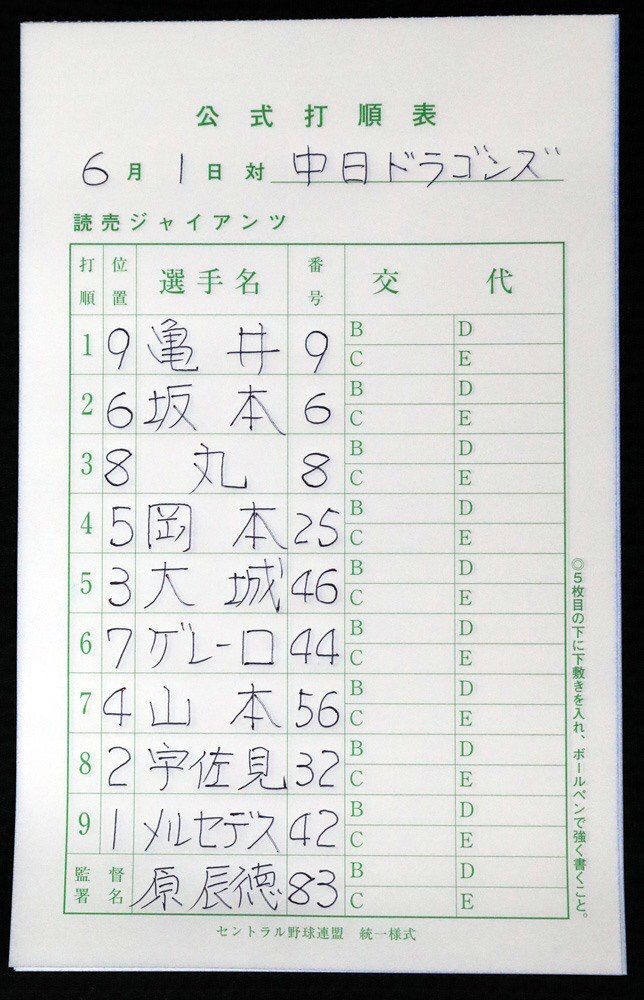 公式打順表
6月1日対 中日ドラゴンズ
読売ジャイアンツ
打順 位置 選手名 番号 交代
1 9 亀井 9 B D
C E
2 6 坂本 6 B D
C E
3 8 丸 8 B D
C E
4 5 岡本 25 B D
C E
5 3 大城 46 B D
C E
6 7 ゲレーロ 44 B D
C E
7 4 山本 56 B D
C E
8 2 宇佐見 32 B D
C E
9 1 メルセデス 42 B D
C E
監督署名 原辰徳 83 B D
C E
◎5枚目の下に下敷きを入れ、ボールペンで強く書くこと。
セントラル野球連盟 統一様式